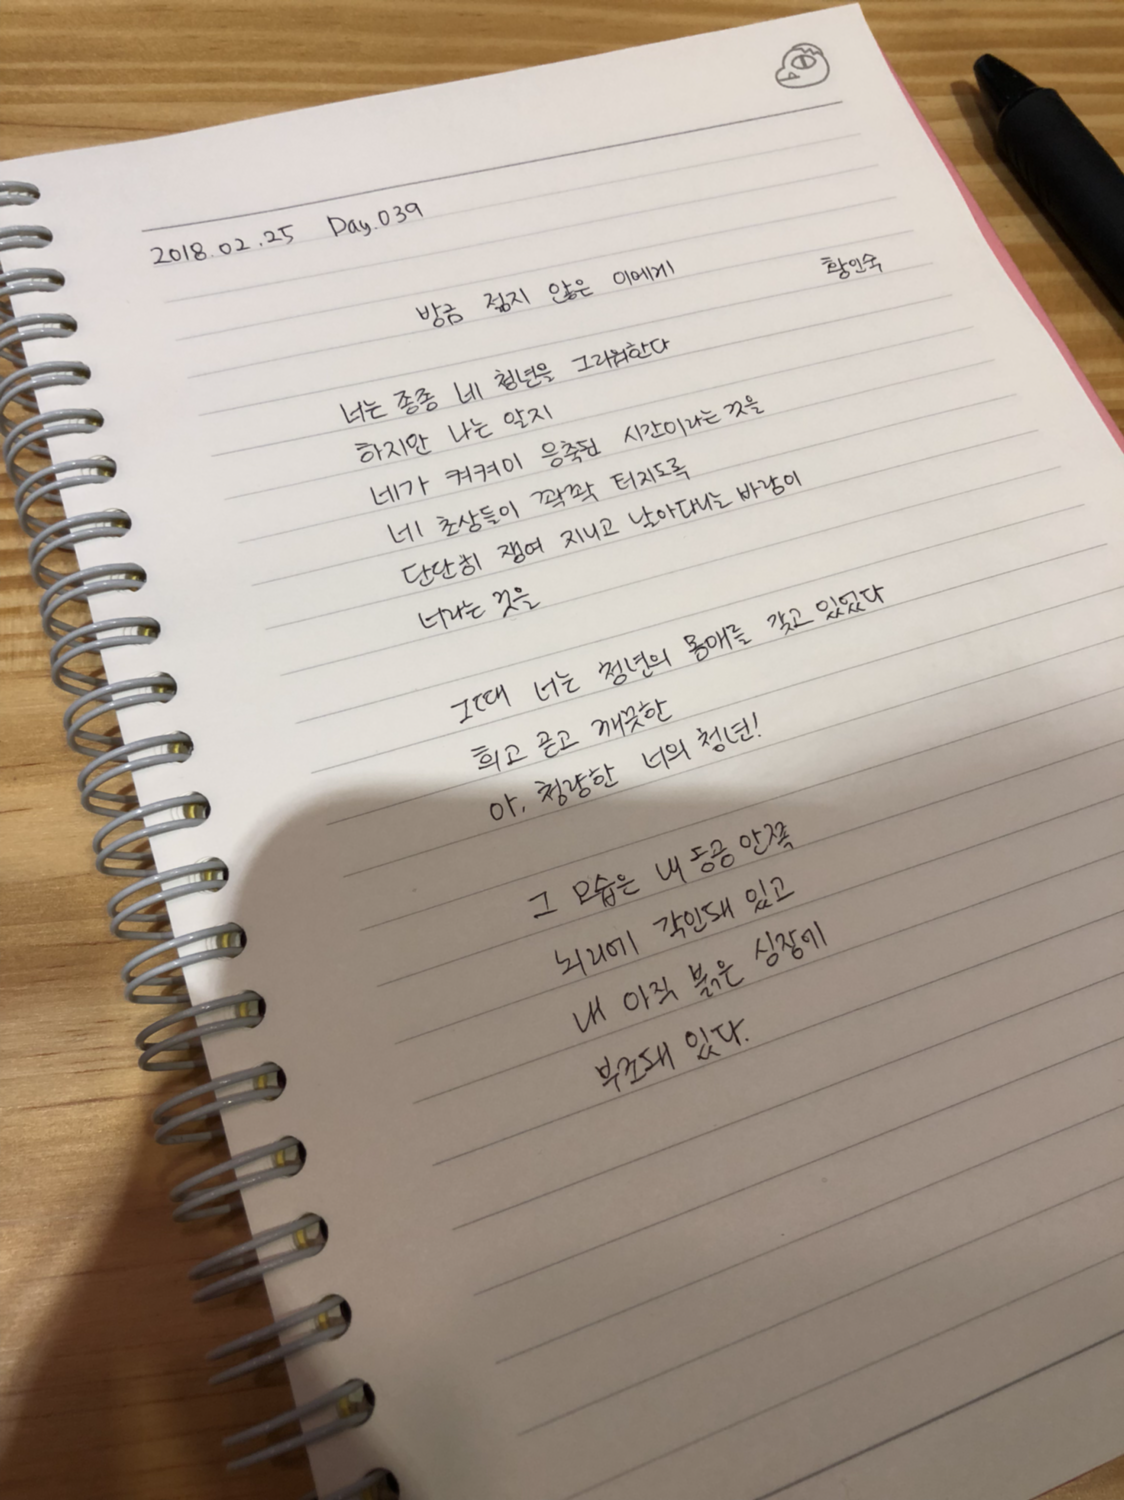 2018.02.25 Day.039
방금 젊지 않은 이에게 황인숙
너는 종종 네 청년을 그리워한다
하지만 나는 알지
네가 켜켜이 응축된 시간이라는 것을
네 초상들이 꽉꽉 터지도록
단단히 쟁여 지니고 날아다니는 바람이
너라는 것을
그때 너는 청년의 몸매를 갖고 있었다
희고 곧고 깨끗한
아, 청량한 너의 청년!
그 모습은 내 동공 안쪽
뇌리에 각인돼 있고
내 아직 붉은 심장에
부조돼 있다.